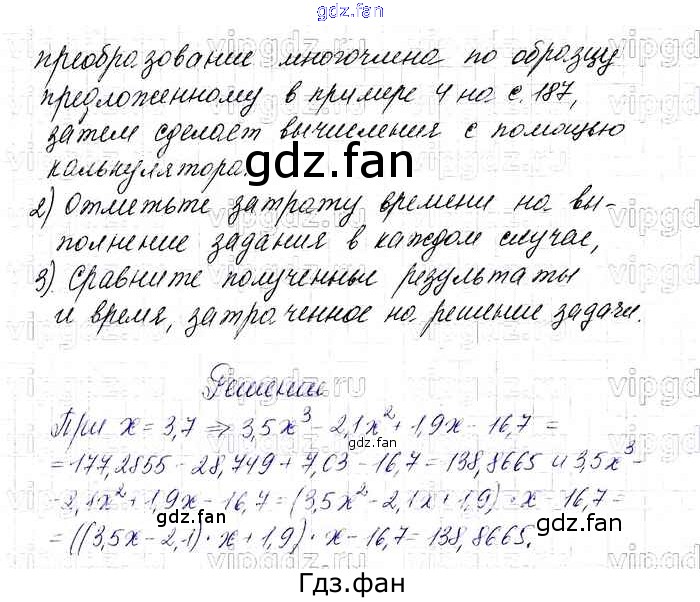 gdz.fan
преобразование многочлена по образцу
предложенному в примере 4 на с. 187,
затем сделает вычисления с помощью
калькулятора.
gdz.fan
2) Отметьте затрату времени на вы-
полнение задания в каждом случае,
3) Сравните полученные результаты
и время, затраченное на решение задачи.
Решение.
При x = 3,7 ⇒ 3,5x³ - 2,1x² + 1,9x - 16,7 =
gdz.fan
= 177,2855 - 28,749 + 7,03 - 16,7 = 138,8665 и 3,5x³ -
- 2,1x² + 1,9x - 16,7 = (3,5x² - 2,1x + 1,9) · x - 16,7 =
gdz.fan
gdz.fan
= ((3,5x - 2,1) · x + 1,9) · x - 16,7 = 138,8665.
Гдз.фан